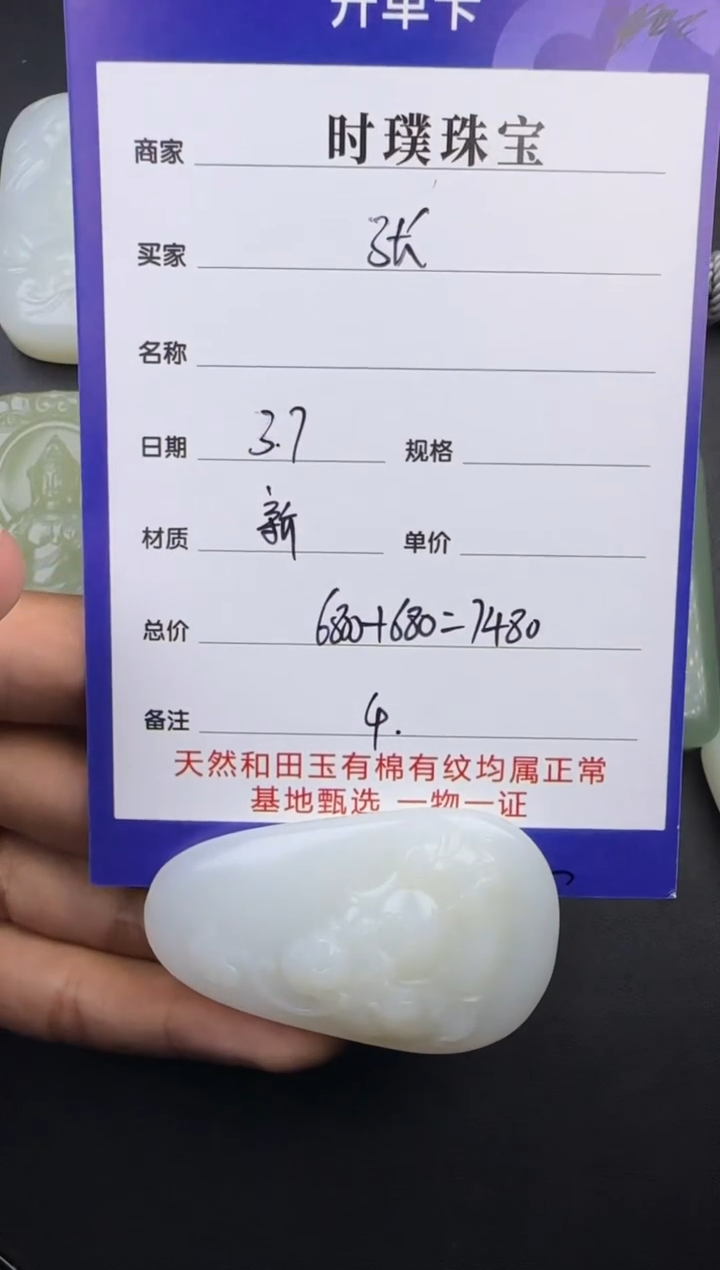 开单卡
商家 时璞珠宝
买家 张
名称
日期 3.7 规格
材质 新 单价
总价 6800+680=7480
备注 4.
天然和田玉有棉有纹均属正常
基地甄选 一物一证